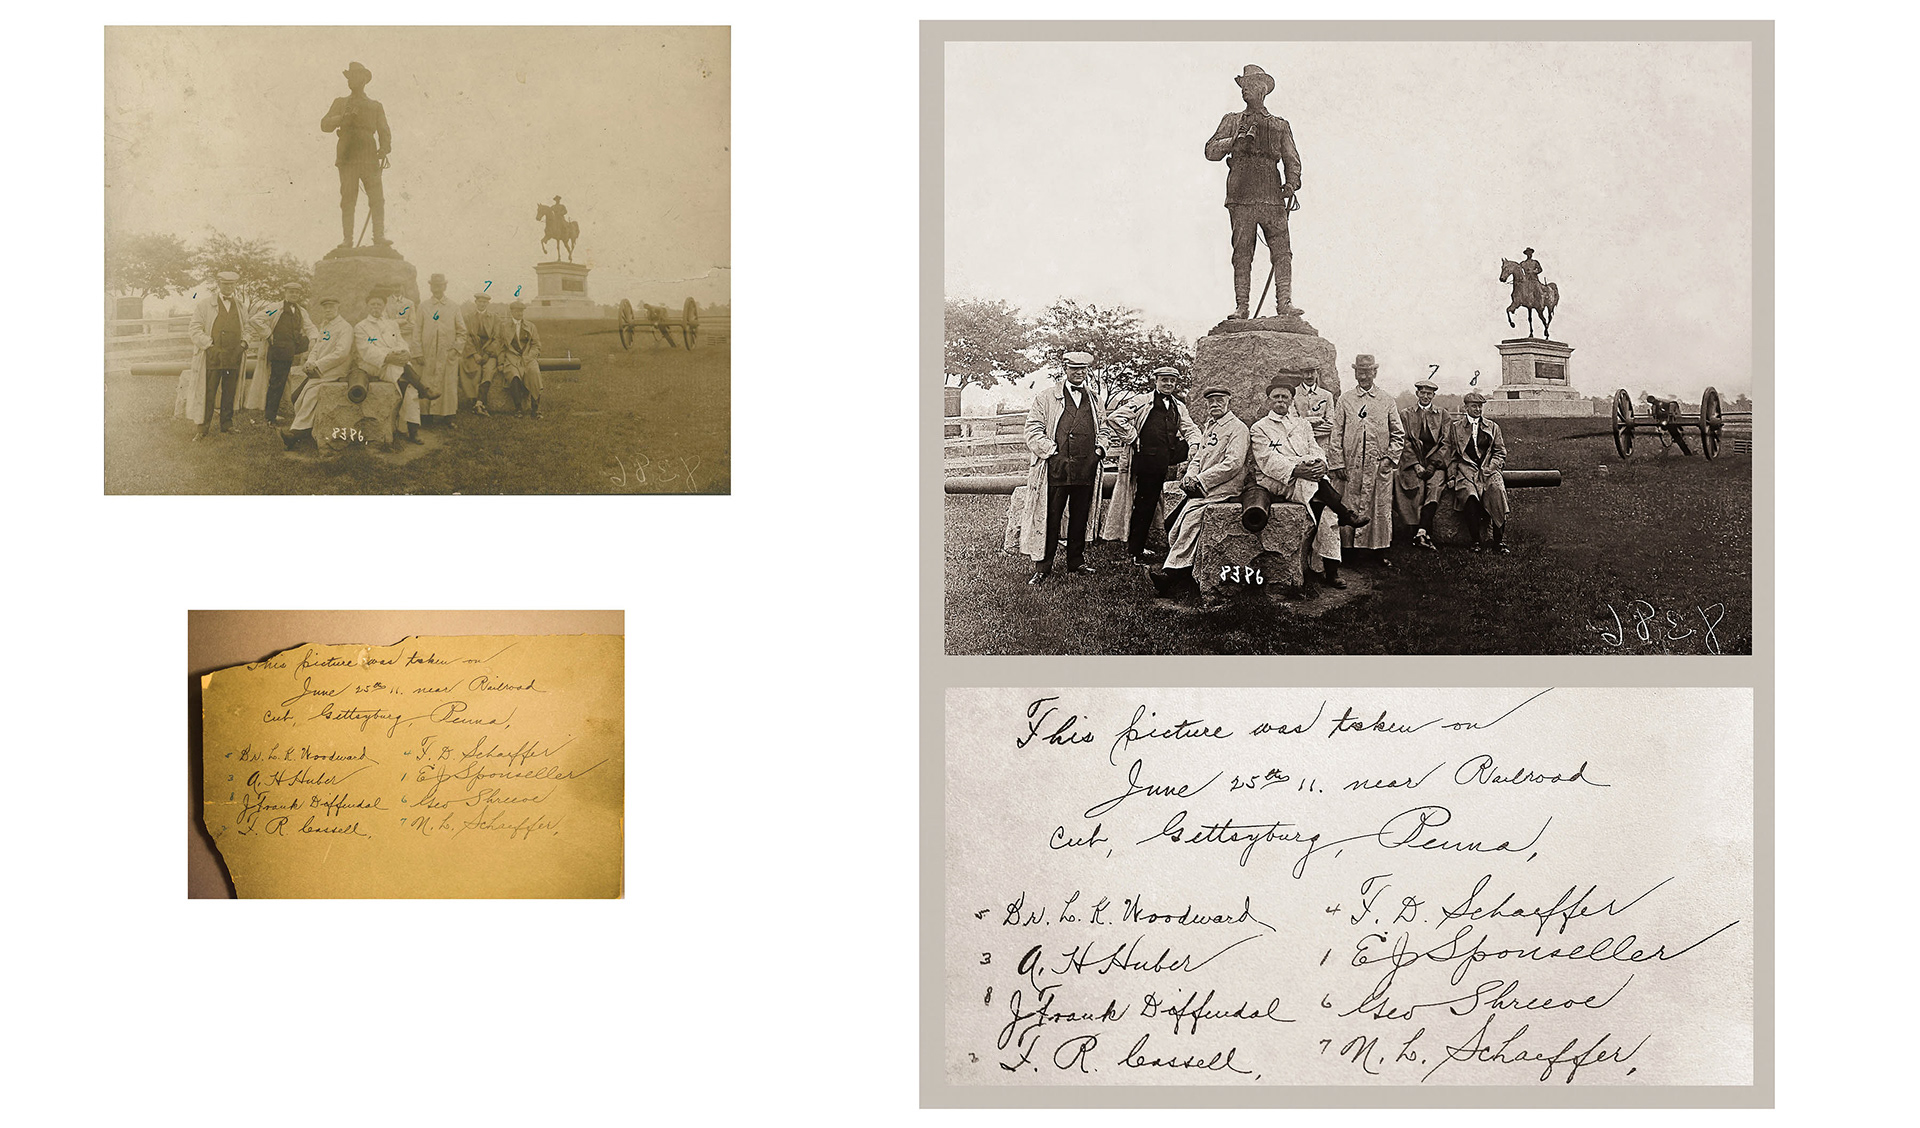 1
2
3
4
5
6
7
8
8386
J P E J
This picture was taken on
June 25th 11. near Railroad
cut, Gettsyburg, Penna,
5 Dr. L. K. Woodward 4 F. D. Schaeffer
3 A. H Huber 1 E J Sponseller
8 J Frank Diffendal 6 Geo Shreeve
2 F. R. Cassell, 7 N. L. Schaeffer,
3
4
5
6
7
8
8386
J P E J
This picture was taken on
June 25th 11. near Railroad
cut, Gettsyburg, Penna,
5 Dr. L. K. Woodward 4 F. D. Schaeffer
3 A. H Huber 1 E J Sponseller
8 J Frank Diffendal 6 Geo Shreeve
2 F. R. Cassell, 7 N. L. Schaeffer,